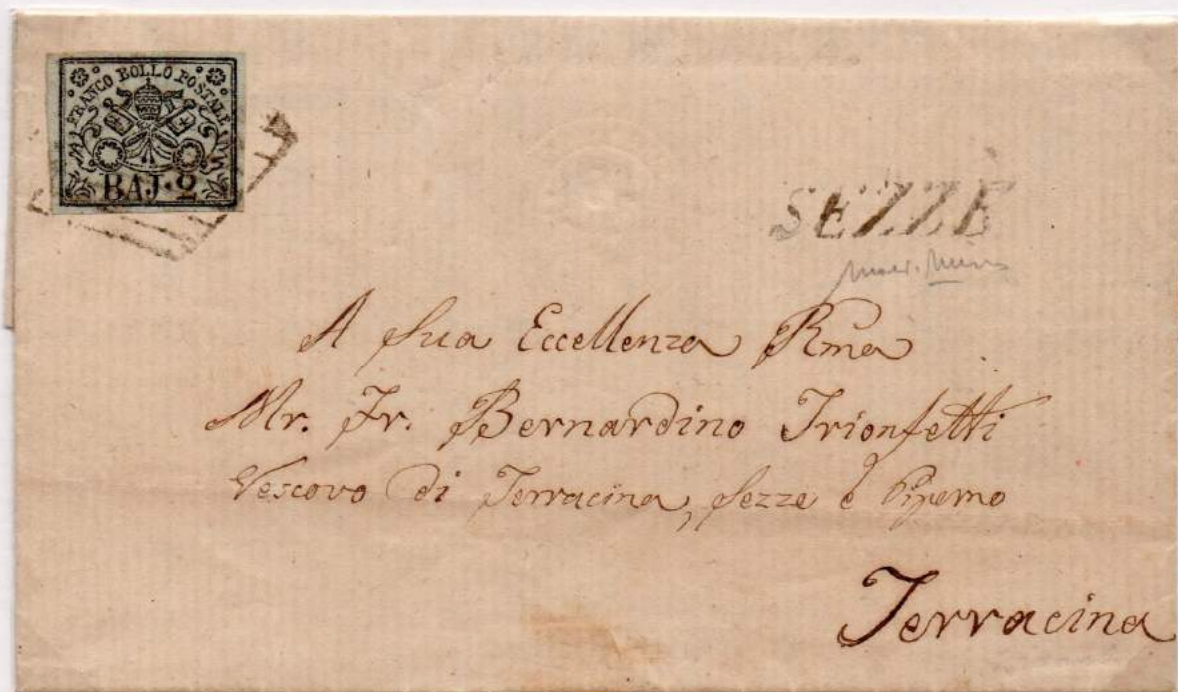 FRANCO BOLLO POSTALE
BAJ·2
SEZZE
A Sua Eccellenza Rma
Mr. Fr. Bernardino Trionfetti
Vescovo di Terracina, Sezze e Piperno
Terracina